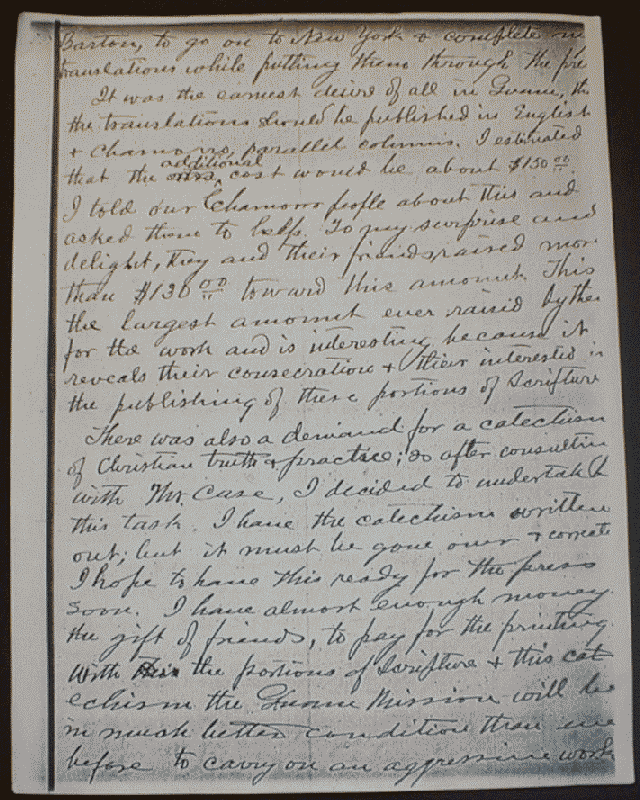 Barton, to go on to New York & complete my
translations while putting them through the pre
It was the earnest desire of all in Guam, th
the translations should be published in English
& Chamorro, parallel columns. I estimated
that the additional cost would be about $150 00
I told our Chamorro people about this and
asked them to help. To my surprise and
delight, they and their friends raised mor
than $130 00 toward this amount. This
the largest amount ever raised by the
for the work and is interesting because it
reveals their consecration & their interested in
the publishing of these portions of Scripture
There was also a demand for a catechism
of Christian truth & practice; so after consultin
with Mr. Case, I decided to undertake
this task. I have the catechism written
out; but it must be gone over & correcte
I hope to have this ready for the press
soon. I have almost enough money
the gift of friends, to pay for the printing.
With the portions of Scripture & this cat
echism the Guam Mission will be
in much better condition than eve
before to carry on an aggressive work